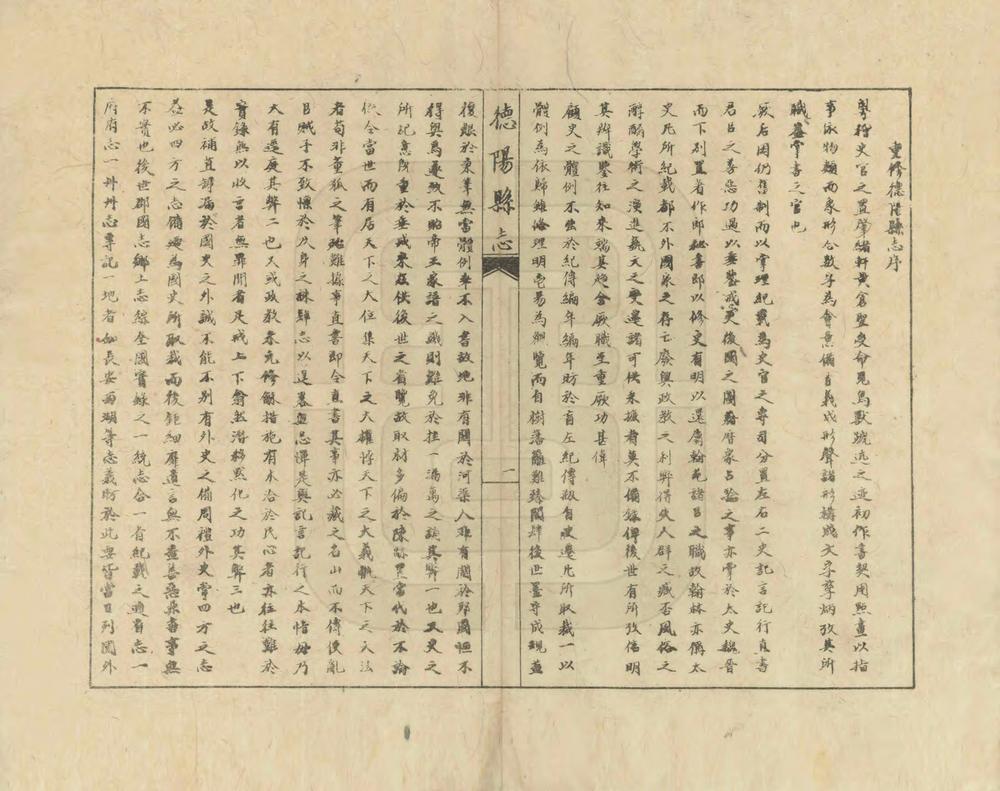 重修德陽縣志序
粵稽史官之置肇緒軒黃倉聖受命見鳥獸蹏迒之迹初作書契用點畫以指
事泳物類而象形合數字為會意備首義成形聲諸形構成文字孳炳孜其所
職蓋掌書之官也
厥后因仍舊制而以掌理紀載為史官之專司分置左右二史記言記行直書
君臣之善惡功過以垂鑒戒更後國之圖籍曆家占驗之事亦掌於太史魏晉
而下別置著作郎秘書郎以修史有明以還膺翰苑諸臣之職故翰林亦偁太
史凡所紀載都不外國家之存亡廢興政教之利弊得失人群之臧否風俗之
醇醨學術之漢進藝文之變遷諸可供采摭者莫不備錄俾後世有所攷信明
其辨識鑒往知來端其趨舍厥職至重厥功甚偉
顧史之體例不強於紀傳編年編年昉於盲左紀傳叛自史遷凡所取裁一以
體例為依歸雖淹理明壹易為觀覽而自樹藩籬難臻閎肆後世墨守成規並
德陽縣志
一
復艱於秉筆無當體例率不入書故地非有關於河渠人非有關於郡國恒不
得與焉遂致不貽帝王家譜之譏則難免於挂一漏萬之誚其弊一也又史之
所紀意所重於垂戒來茲供後世之省覽故取材多偏於陳跡罣當代於不論
依今當世而有居天下之大位集天下之大權悖天下之大義亂天下之大法
者苟非董狐之筆殆難據事直書即令直書其事亦必藏之名山而不傳使亂
臣賊子不致懍於及身之誅肆志以逞暴無忌憚是與記言記行之本恉毋乃
大有逕庭其弊二也又或政教者尤修黜措施有未洽於民心者亦往往難於
實錄無以收言者無罪聞者足戒上下翕然潛移默化之功其弊三也
是故補苴罅漏於國史之外誠不能不別有外史之備周禮外史掌四方之志
蓋必四方之志備始為國史所取裁而後鉅細靡遺言無不盡善惡柒書事無
不實也後世郡國志鄉土志綜全國實錄之一統志合一省紀載之通省志一
府府志一州州志專記一地者如長安西湖等志義昉於此要皆當日列國外